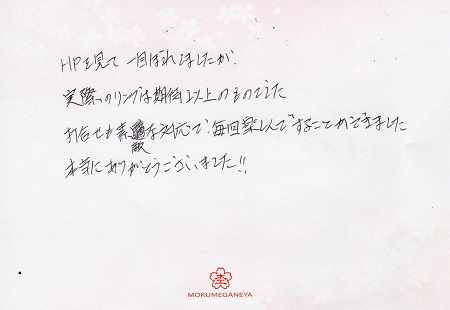 HPを見て一目ぼれしましたが、
実際のリングは期待以上のものでした
打合せも素敵な対応で、毎回楽しんですることができました
本当にありがとうございました!!
MOKUMEGANEYA